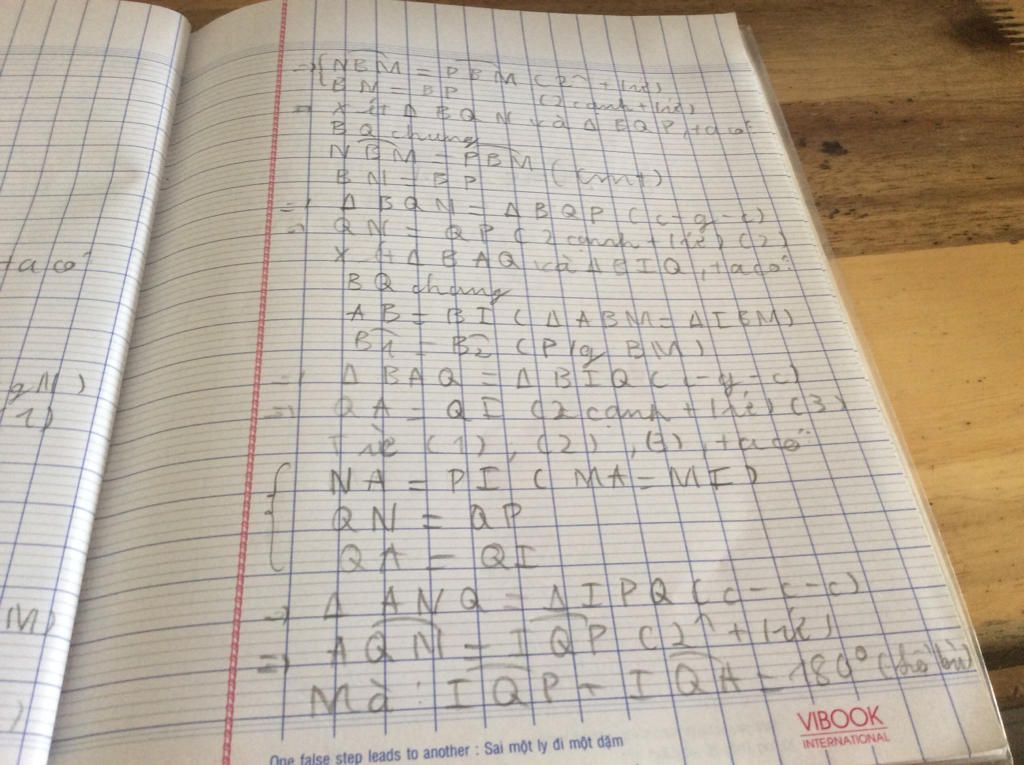 +a có
gN)
1)
M)
)
→ { NBM = PBM (2^ + ứ)
BN = BP (2 cạnh + ứ)
→ Xét Δ BQN và Δ BQP, ta có:
BQ chung
NBM = PBM
BN = BP (cmt)
=> Δ BQN = Δ BQP (c-g-c)
=> QN = QP (2 cạnh + ứ) (2)
Xét Δ BAQ và Δ BIQ, ta có:
BQ chung
AB = BI (Δ ABM = Δ IBM)
B1 = B2 (P/g BM)
=> Δ BAQ = Δ BIQ (c-g-c)
=> QA = QI (2 cạnh + ứ) (3)
Từ (1), (2), (3), ta có:
{ NA = PI (MA = MI)
QN = QP
QA = QI
=> Δ ANQ = Δ IPQ (c-c-c)
=> AQN = IQP (2^ + ứ)
Mà: IQP + IQA = 180°
VIBOOK
INTERNATIONAL
One false step leads to another : Sai một ly đi một dặm